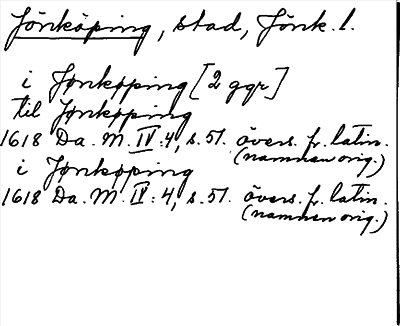 Jönköping, stad, Jönk. l.
i Jønkøping [2 ggr]
til Jønkøping
1618 Da. M. IV: 4, s. 51. övers. fr. latin.
(namnen orig.)
i Jønkøping
1618 Da. M. IV: 4, s. 51. övers. fr. latin.
(namnen orig.)